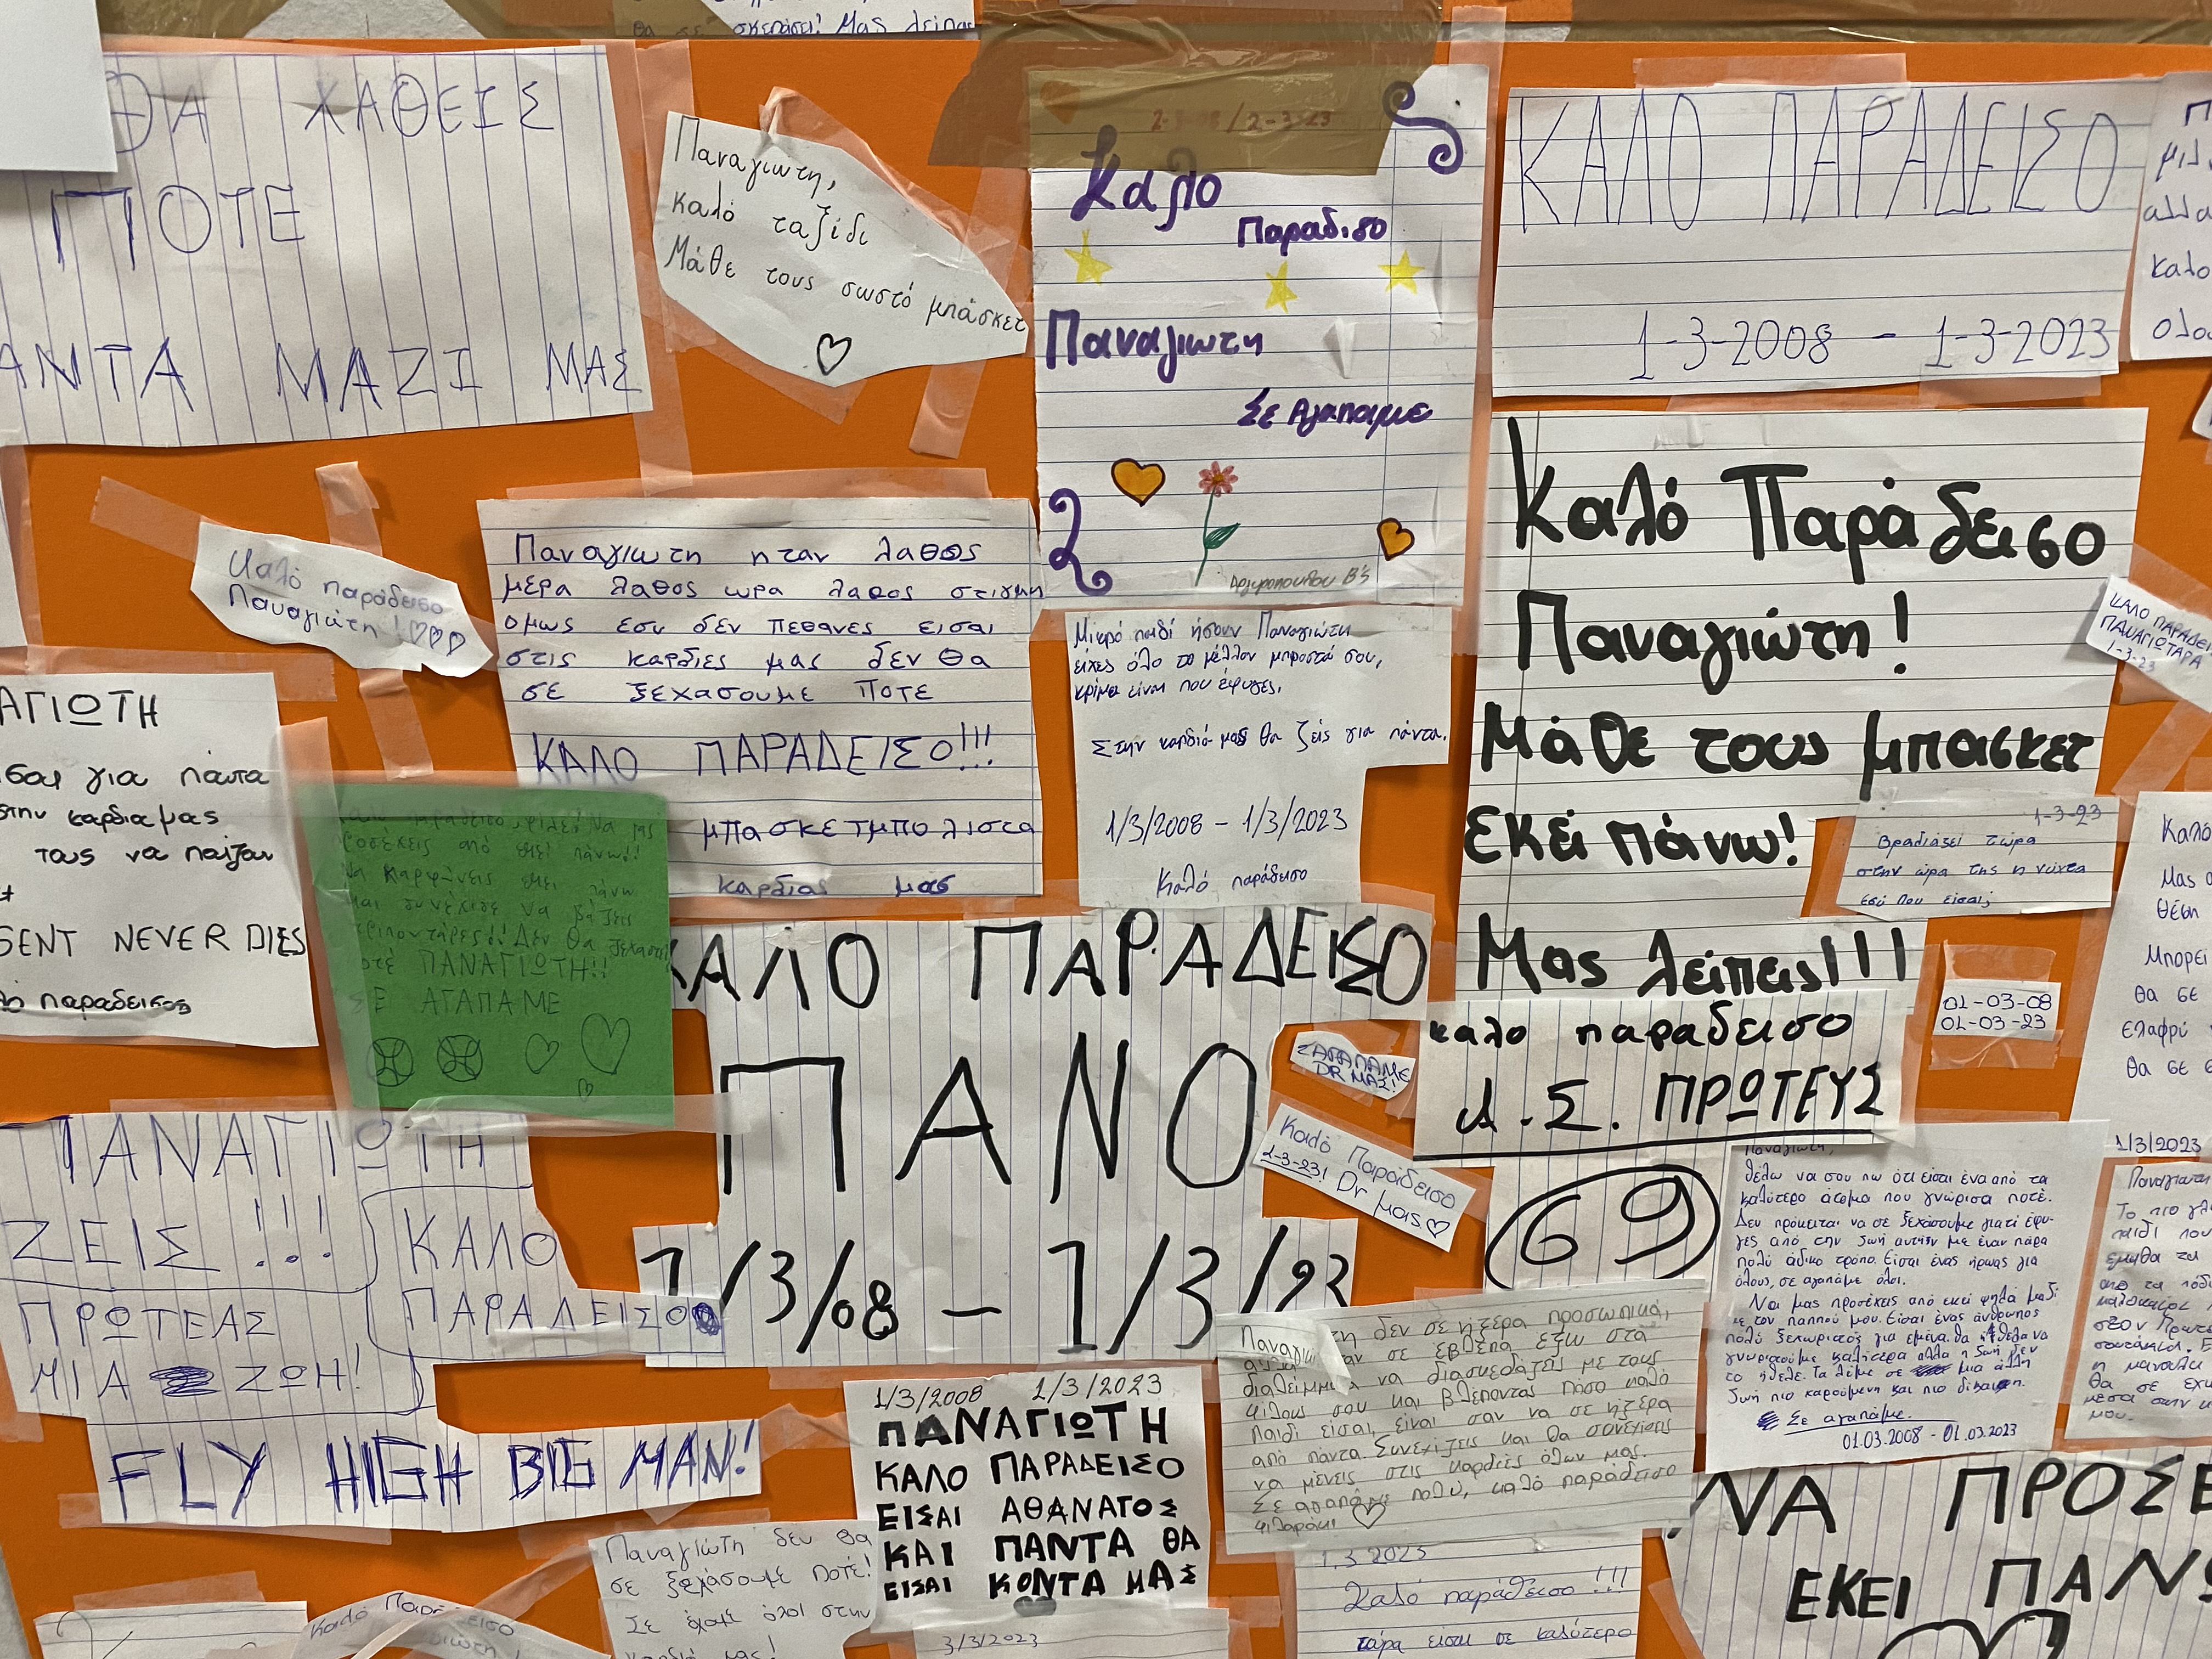 σκεπάσει! Μας λείπεις
ΘΑ ΧΑΘΕΙΣ
ΠΟΤΕ
ΑΝΤΑ ΜΑΖΙ ΜΑΣ
Παναγιώτη,
καλό ταξίδι
Μάθε τους σωστό μπάσκετ
Καλο
Παραδισο
Παναγιωτη
Σε Αγαπαμε
Αργυροπουλου Β'5
ΚΑΛΟ ΠΑΡΑΔΕΙΣΟ
1-3-2008 - 1-3-2023
Καλό παράδεισο
Παναγιώτη!
Παναγιωτη ηταν λαθος
μερα λαθος ωρα λαθος στιγμη
ομως εσυ δεν πεθανες εισαι
στις καρδιες μας δεν θα
σε ξεχασουμε ποτε
ΚΑΛΟ ΠΑΡΑΔΕΙΣΟ!!!
μπασκετμπολιστα
καρδιας μας
Μικρό παιδί ήσουν Παναγιώτη
είχες όλο το μέλλον μπροστά σου,
κρίμα είναι που έφυγες,
Στην καρδιά μας θα ζείς για πάντα.
1/3/2008 - 1/3/2023
Καλό παράδεισο
Καλό Παράδεισο
Παναγιώτη!
Μάθε τους μπασκετ
εκεί πάνω!
Μας λείπεις!!!
1-3-23
Βραδιάζει τώρα
στην ώρα της η νύχτα
εσύ που είσαι;
ΚΑΛΟ ΠΑΡΑΔΕΙ
ΠΑΝΑΓΙΩΤΑΡΑ
1-3-23
ΑΓΙΩΤΗ
ισαι για παντα
στην καρδια μας
τους να παιζουν
GENT NEVER DIES
λό παραδεισος
Να μας
προσέχεις από εκεί πάνω!!
Να καρφώνεις εκεί πάνω
και συνέχισε να βάζεις
τρίποντάρες!! Δεν θα ξεχαστεί
ΠΑΝΑΓΙΩΤΗ!!
ΣΕ ΑΓΑΠΑΜΕ
ΚΑΛΟ ΠΑΡΑΔΕΙΣΟ
ΠΑΝΟ
1/3/08 - 1/3/23
καλο παραδεισο
Α.Σ. ΠΡΩΤΕΥΣ
69
01-03-08
01-03-23
Σ'ΑΓΑΠΑΜΕ
DR ΜΑΣ!
Καλό Παράδεισο
1-3-23! Dr μας
Καλό
Μας
θέση
Μπορεί
θα σε
ελαφρύ
θα σε
ΠΑΝΑΓΙΩΤΗ
ΖΕΙΣ !!!
ΚΑΛΟ
ΠΑΡΑΔΕΙΣΟ
ΠΡΩΤΕΑΣ
ΜΙΑ ΖΩΗ!
FLY HIGH BIG MAN!
1/3/2008 1/3/2023
ΠΑΝΑΓΙΩΤΗ
ΚΑΛΟ ΠΑΡΑΔΕΙΣΟ
ΕΙΣΑΙ ΑΘΑΝΑΤΟΣ
ΚΑΙ ΠΑΝΤΑ ΘΑ
ΕΙΣΑΙ ΚΟΝΤΑ ΜΑΣ
3/3/2023
Παναγιώτη δεν σε ήξερα προσωπικά,
αλλά σε έβλεπα έξω στα
διαλείμματα να διασκεδάζεις με τους
φίλους σου και βλέποντας πόσο καλό
παιδί είσαι, είναι σαν να σε ήξερα
από πάντα. Συνεχίζεις και θα συνεχίσεις
να μένεις στις καρδιές όλων μας.
Σε αγαπάμε πολύ, καλό παράδεισο
φιλαράκι
Παναγιώτη,
θέλω να σου πω ότι είσαι ένα από τα
καλύτερο άτομα που γνώρισα ποτέ.
Δεν πρόκειται να σε ξεχάσουμε γιατί έφυ-
γες από την ζωή αυτήν με έναν πάρα
πολύ άδικο τρόπο. Είσαι ένας ήρωας για
όλους, σε αγαπάμε όλοι.
Να μας προσέχεις από εκεί ψηλά μαζί
με τον παππού μου. Είσαι ένας άνθρωπος
πολύ ξεχωριστός για εμένα. θα ήθελα να
γνωριστούμε καλύτερα αλλα η ζωή δεν
το ήθελε. Τα λέμε σε μια άλλη
ζωή πιο χαρούμενη και πιο δίκαιη.
Σε αγαπάμε.
01.03.2008 - 01.03.2023
1/3/2023
Παναγιωτη
Το πιο γλ
παιδί που
εμαθα τα
απο τα πόδι
καλοκαίρι
στον Πρωτε
θα σε έχω
μέσα στην κ
μου.
Παναγιώτη δεν θα
σε ξεχάσουμε ποτέ!
Σε έχουμε όλοι στην
καρδιά μας!
Καλό Παράδεισο
1.3.2023
Καλό παράδεισο !!!
τώρα εισαι σε καλύτερο
ΝΑ ΠΡΟΣΕ
ΕΚΕΙ ΠΑΝΩ